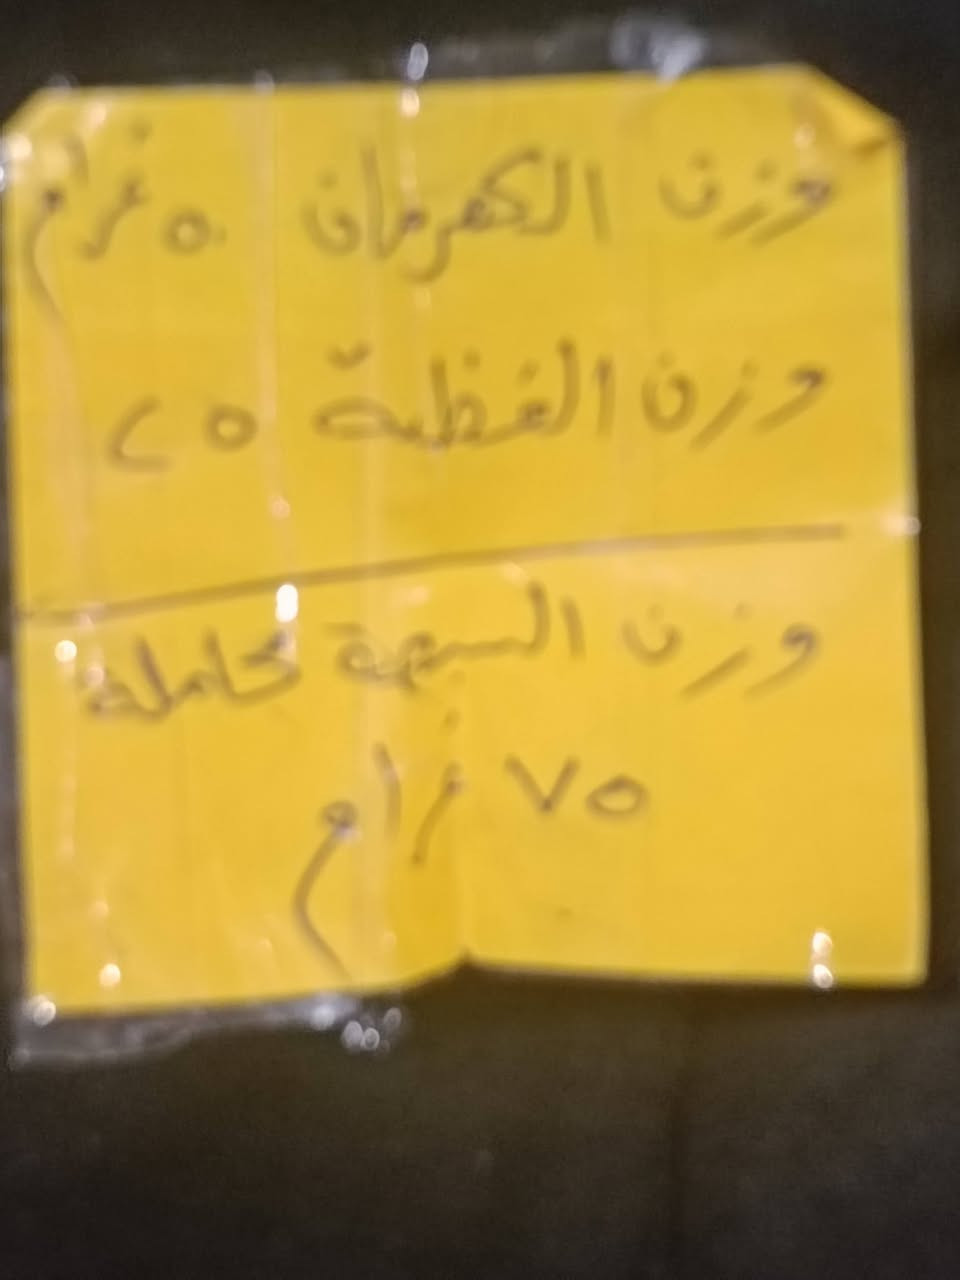 وزن الكهرمان ٥٠ غرام
وزن الفظية ٢٥
وزن السبحة كاملة
٧٥ غرام